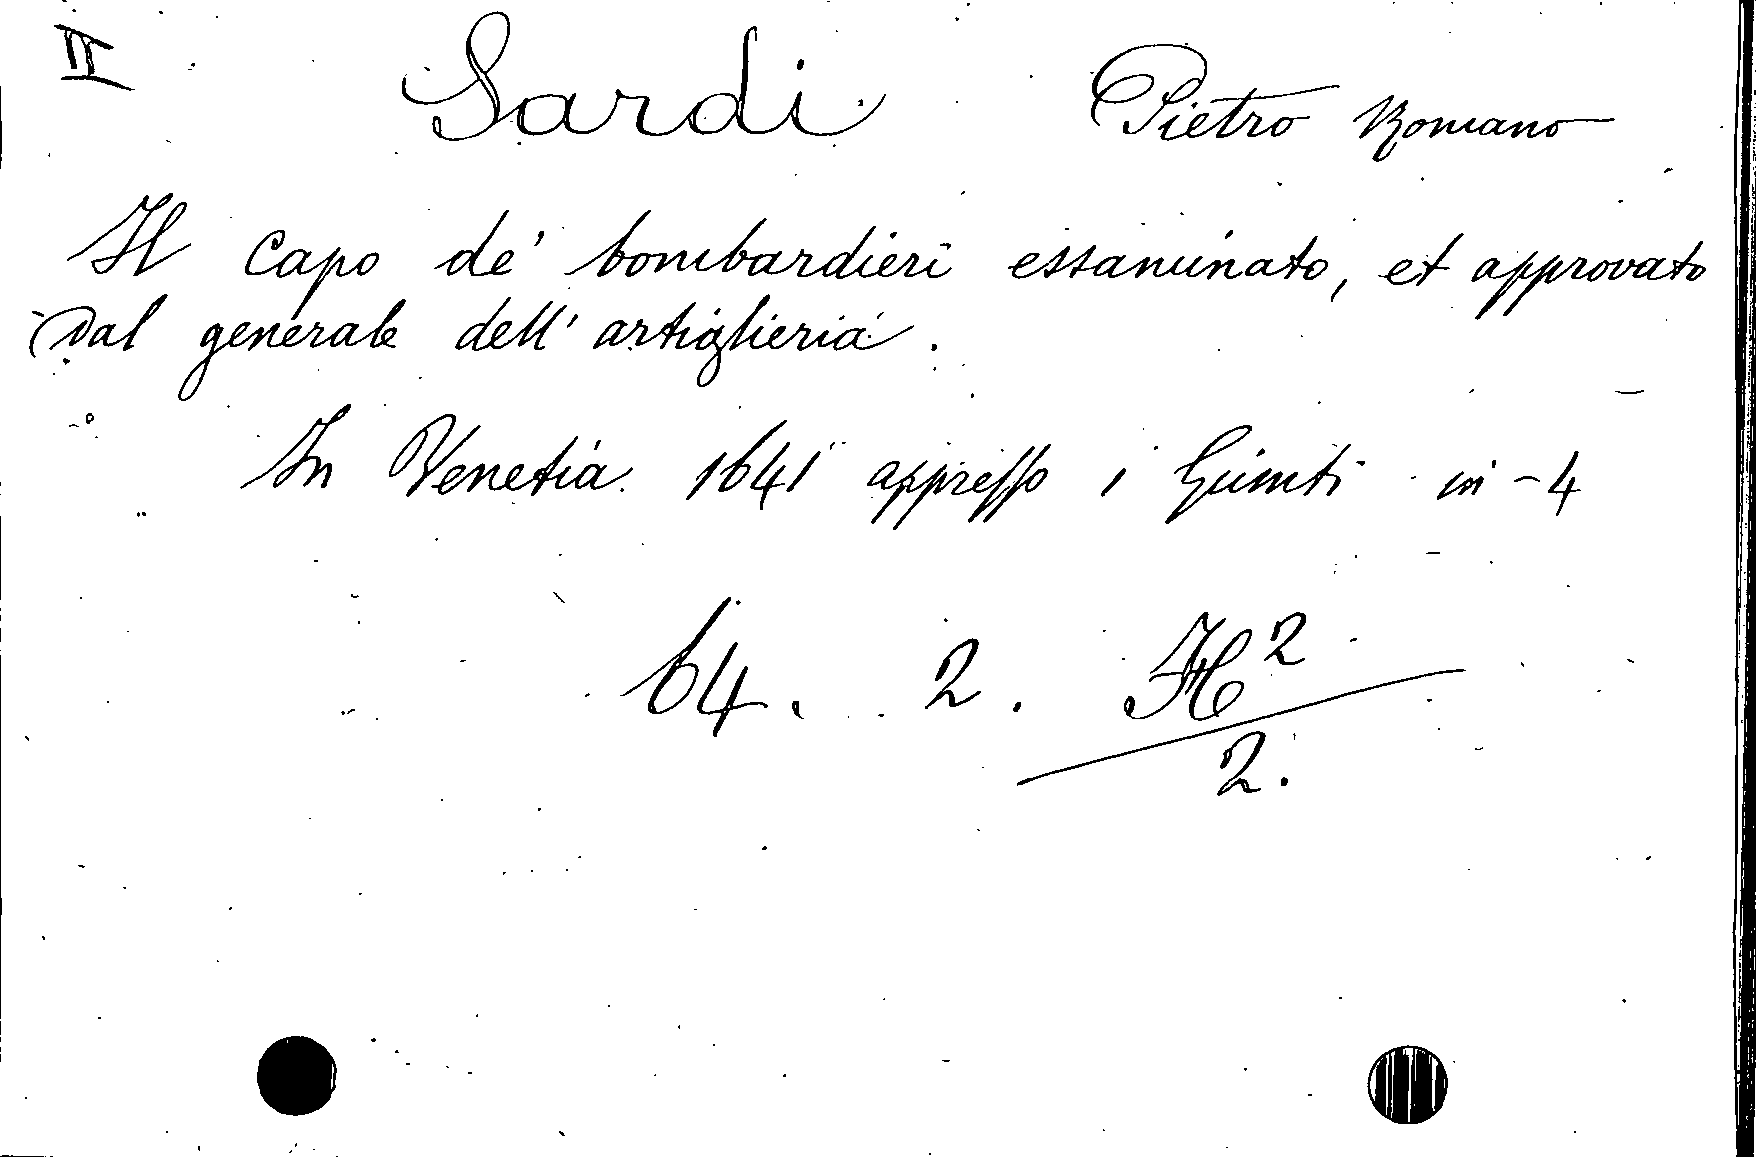 II Sardi Pietro Romano
Il Capo de' bombardieri essaminato, et approvato
Dal generale dell'artiglieria.
In Venetia 1641 appresso i Giunti in-4
64. 2. H²
2.